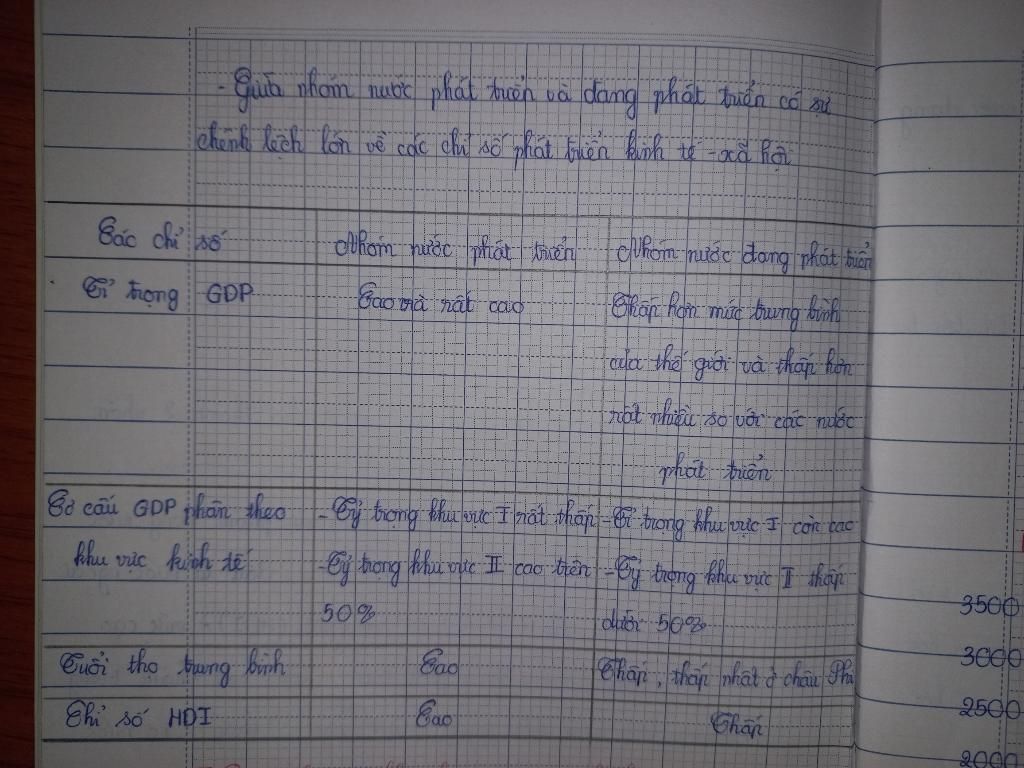 - Giữa nhóm nước phát triển và đang phát triển có sự
chênh lệch lớn về các chỉ số phát triển kinh tế - xã hội
Các chỉ số
Nhóm nước phát triển
Nhóm nước đang phát triển
Tỉ trọng GDP
Cao và rất cao
Thấp hơn mức trung bình
của thế giới và thấp hơn
rất nhiều so với các nước
phát triển
Cơ cấu GDP phân theo
khu vực kinh tế
- Tỷ trọng khu vực I rất thấp
- Tỷ trọng khu vực II cao trên
50%
- Tỉ trọng khu vực I còn cao
- Tỷ trọng khu vực II thấp
dưới 50%
Tuổi thọ trung bình
Cao
Thấp, thấp nhất ở châu Phi
Chỉ số HDI
Cao
Thấp
3500
3000
2500
2000